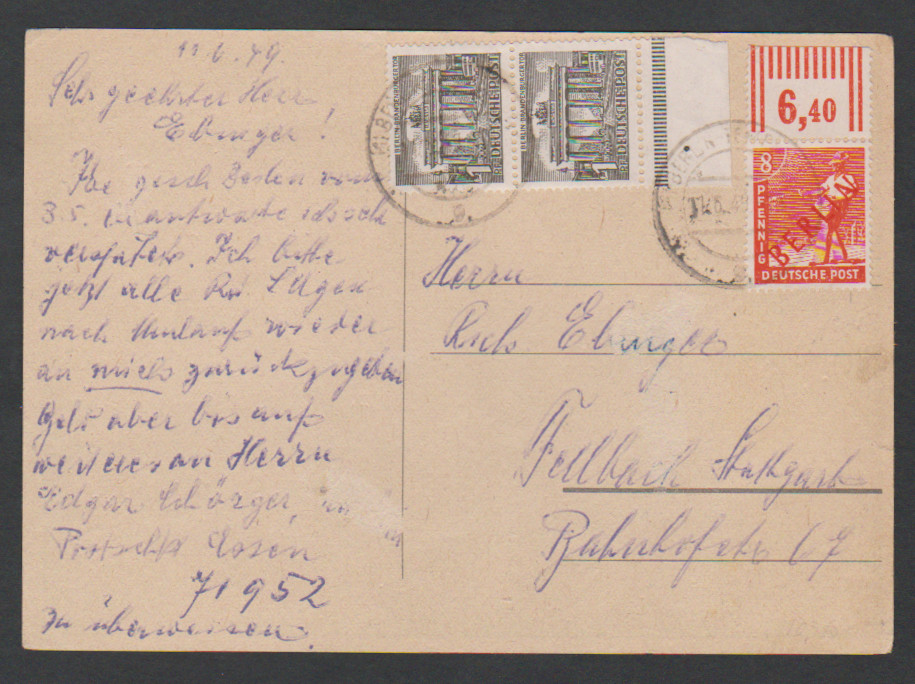 11.6.49.
Sehr geehrter Herr
Ebinger!
Ihr gesch
3.5. beantworte ich
verspätet. Ich bitte
jetzt alle
nach Umlauf wieder
an mich zurückzugeben
Geld aber bis auf
weiteres an Herrn
Edgar
Postscheck Essen
71952
zu überweisen.
BERLIN BRANDENBURGER TOR
1 DEUTSCHE POST
BERLIN BRANDENBURGER TOR
1 DEUTSCHE POST
6,40
8
PFENNIG
BERLIN
DEUTSCHE POST
BERLIN
Herrn
Ebinger
Fellbach Stuttgart
Bahnhofstr 67